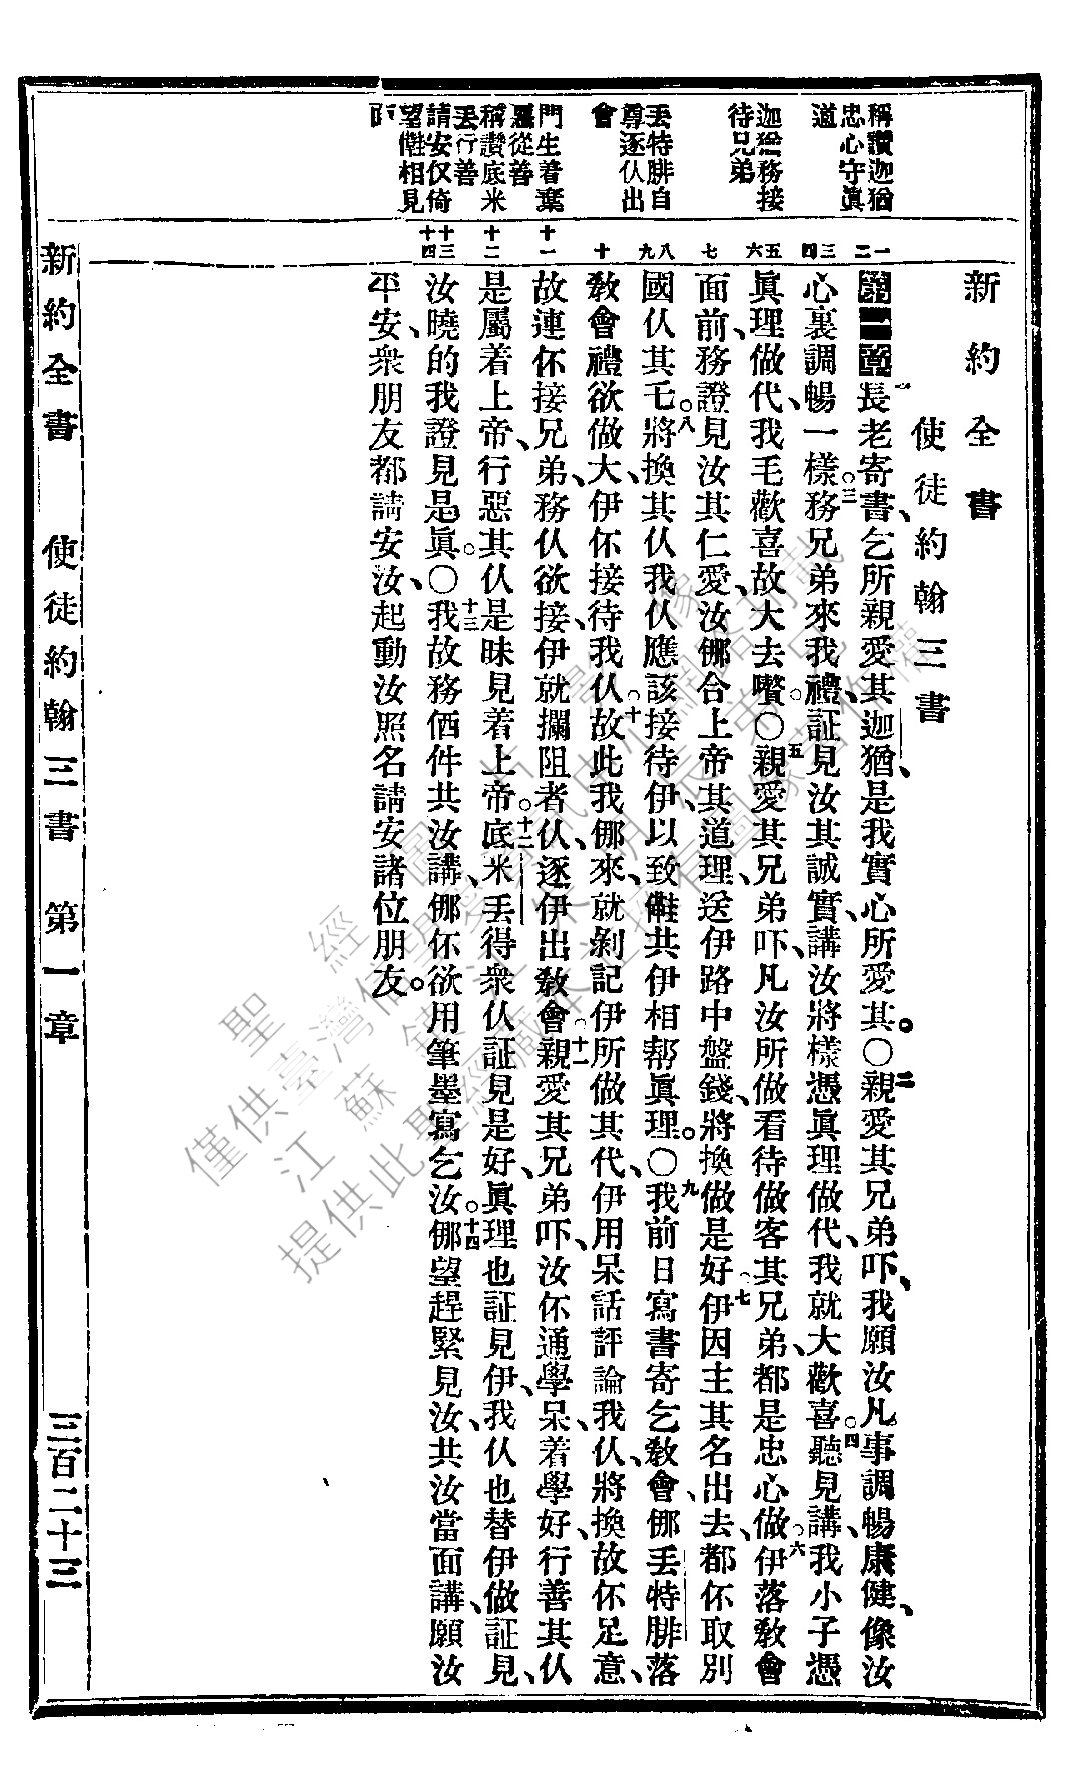 新約全書
使徒約翰三書
第一章長老寄書、乞所親愛其迦猶、是我實心所愛其。〇二親愛其兄弟吓、我願汝凡事調暢康健、像汝
心裏調暢一樣。三務兄弟來我禮、証見汝其誠實、講汝將樣憑眞理做代、我就大歡喜。四聽見講、我小子憑
眞理做代、我毛歡喜故大去嚽。〇五親愛其兄弟吓、凡汝所做看待做客其兄弟、都是忠心做。六伊落敎會
面前、務證見汝其仁愛、汝㑚合上帝其道理、送伊路中盤錢、將換做是好。七伊因主其名出去、都伓取別
國仈其乇。八將換其仈、我仈應該接待伊、以致㑲共伊相帮眞理。〇九我前日寫書寄乞敎會、㑚丟特腓落
敎會禮欲做大、伊伓接待我仈。十故此我㑚來、就剝記伊所做其代、伊用呆話評論我仈、將換故伓足意、
故連伓接兄弟、務仈欲接、伊就攔阻者仈、逐伊出敎會。十一親愛其兄弟吓、汝伓通學呆、着學好、行善其仈
是屬着上帝、行惡其仈是昧見着上帝。十二底米丟得衆仈証見是好、眞理也証見伊、我仈也替伊做証見、
汝曉的我證見是眞。〇十三我故務価件共汝講、㑚伓欲用筆墨寫乞汝。十四㑚望趕緊見汝、共汝當面講、願汝
平安、衆朋友都請安汝、起動汝照名請安諸位朋友。
一
二
三
四
五
六
七
八
九
十
十一
十二
十三
十四
稱讚迦猶
忠心守眞
道
迦猶務接
待兄弟
丢特腓自
尊逐仈出
會
門生着棄
惡從善
稱讚底米
丟行善
請安仅倚
望㑲相見
面
新約全書 使徒約翰三書 第一章 三百二十三
聖經圖片影像
僅供臺灣信望愛資訊中心網路刊載
江蘇鎮江朱明長弟兄
提供此聖經藏本並擁有圖像著作權